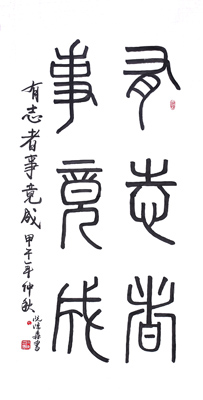 有志者
事竟成
有志者事竟成 甲午年仲秋